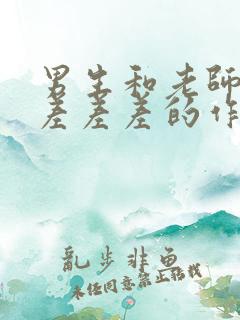 男生和老師
差差差的作
亂步非魚
未经同意禁止转载